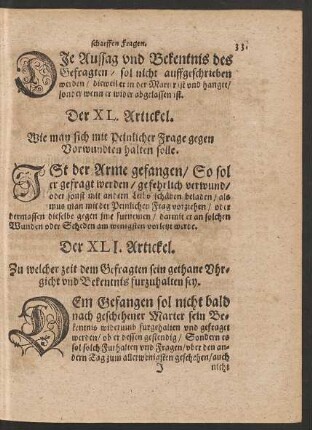 scharffen Fragen. 33.
DIe Aussag vnd Bekentnis des
Gefragten / sol nicht auffgeschrieben
werden / dieweil er in der Marter ist vnd hanget /
sonder wenn er wider abgelassen ist.
Der XL. Artickel.
Wie man sich mit Peinlicher Frage gegen
Vorwundten halten solle.
IST der Arme gefangen / So sol
er gefragt werden / gefehrlich verwund /
oder sonst mit andern Leibs schäden beladen / als
mus man mit der Peinlichen Frag vorziehen / oder
dermassen dieselbe gegen jme furnemen / damit er an solchen
Wunden oder Scheden am wenigsten vorletzt werde.
Der XLI. Artickel.
Zu welcher zeit dem Gefragten sein gethane Vhr-
gicht vnd Bekentnis furzuhalten sey.
DEm Gefangen sol nicht bald
nach geschehener Marter sein Be-
kentnis widerumb furgehalten vnd gefraget
werden / ob er dessen gestendig / Sondern es
sol solch Furhalten vnd Fragen / vber den an-
dern Tag zum allerwenigsten geschehen / auch
I nicht